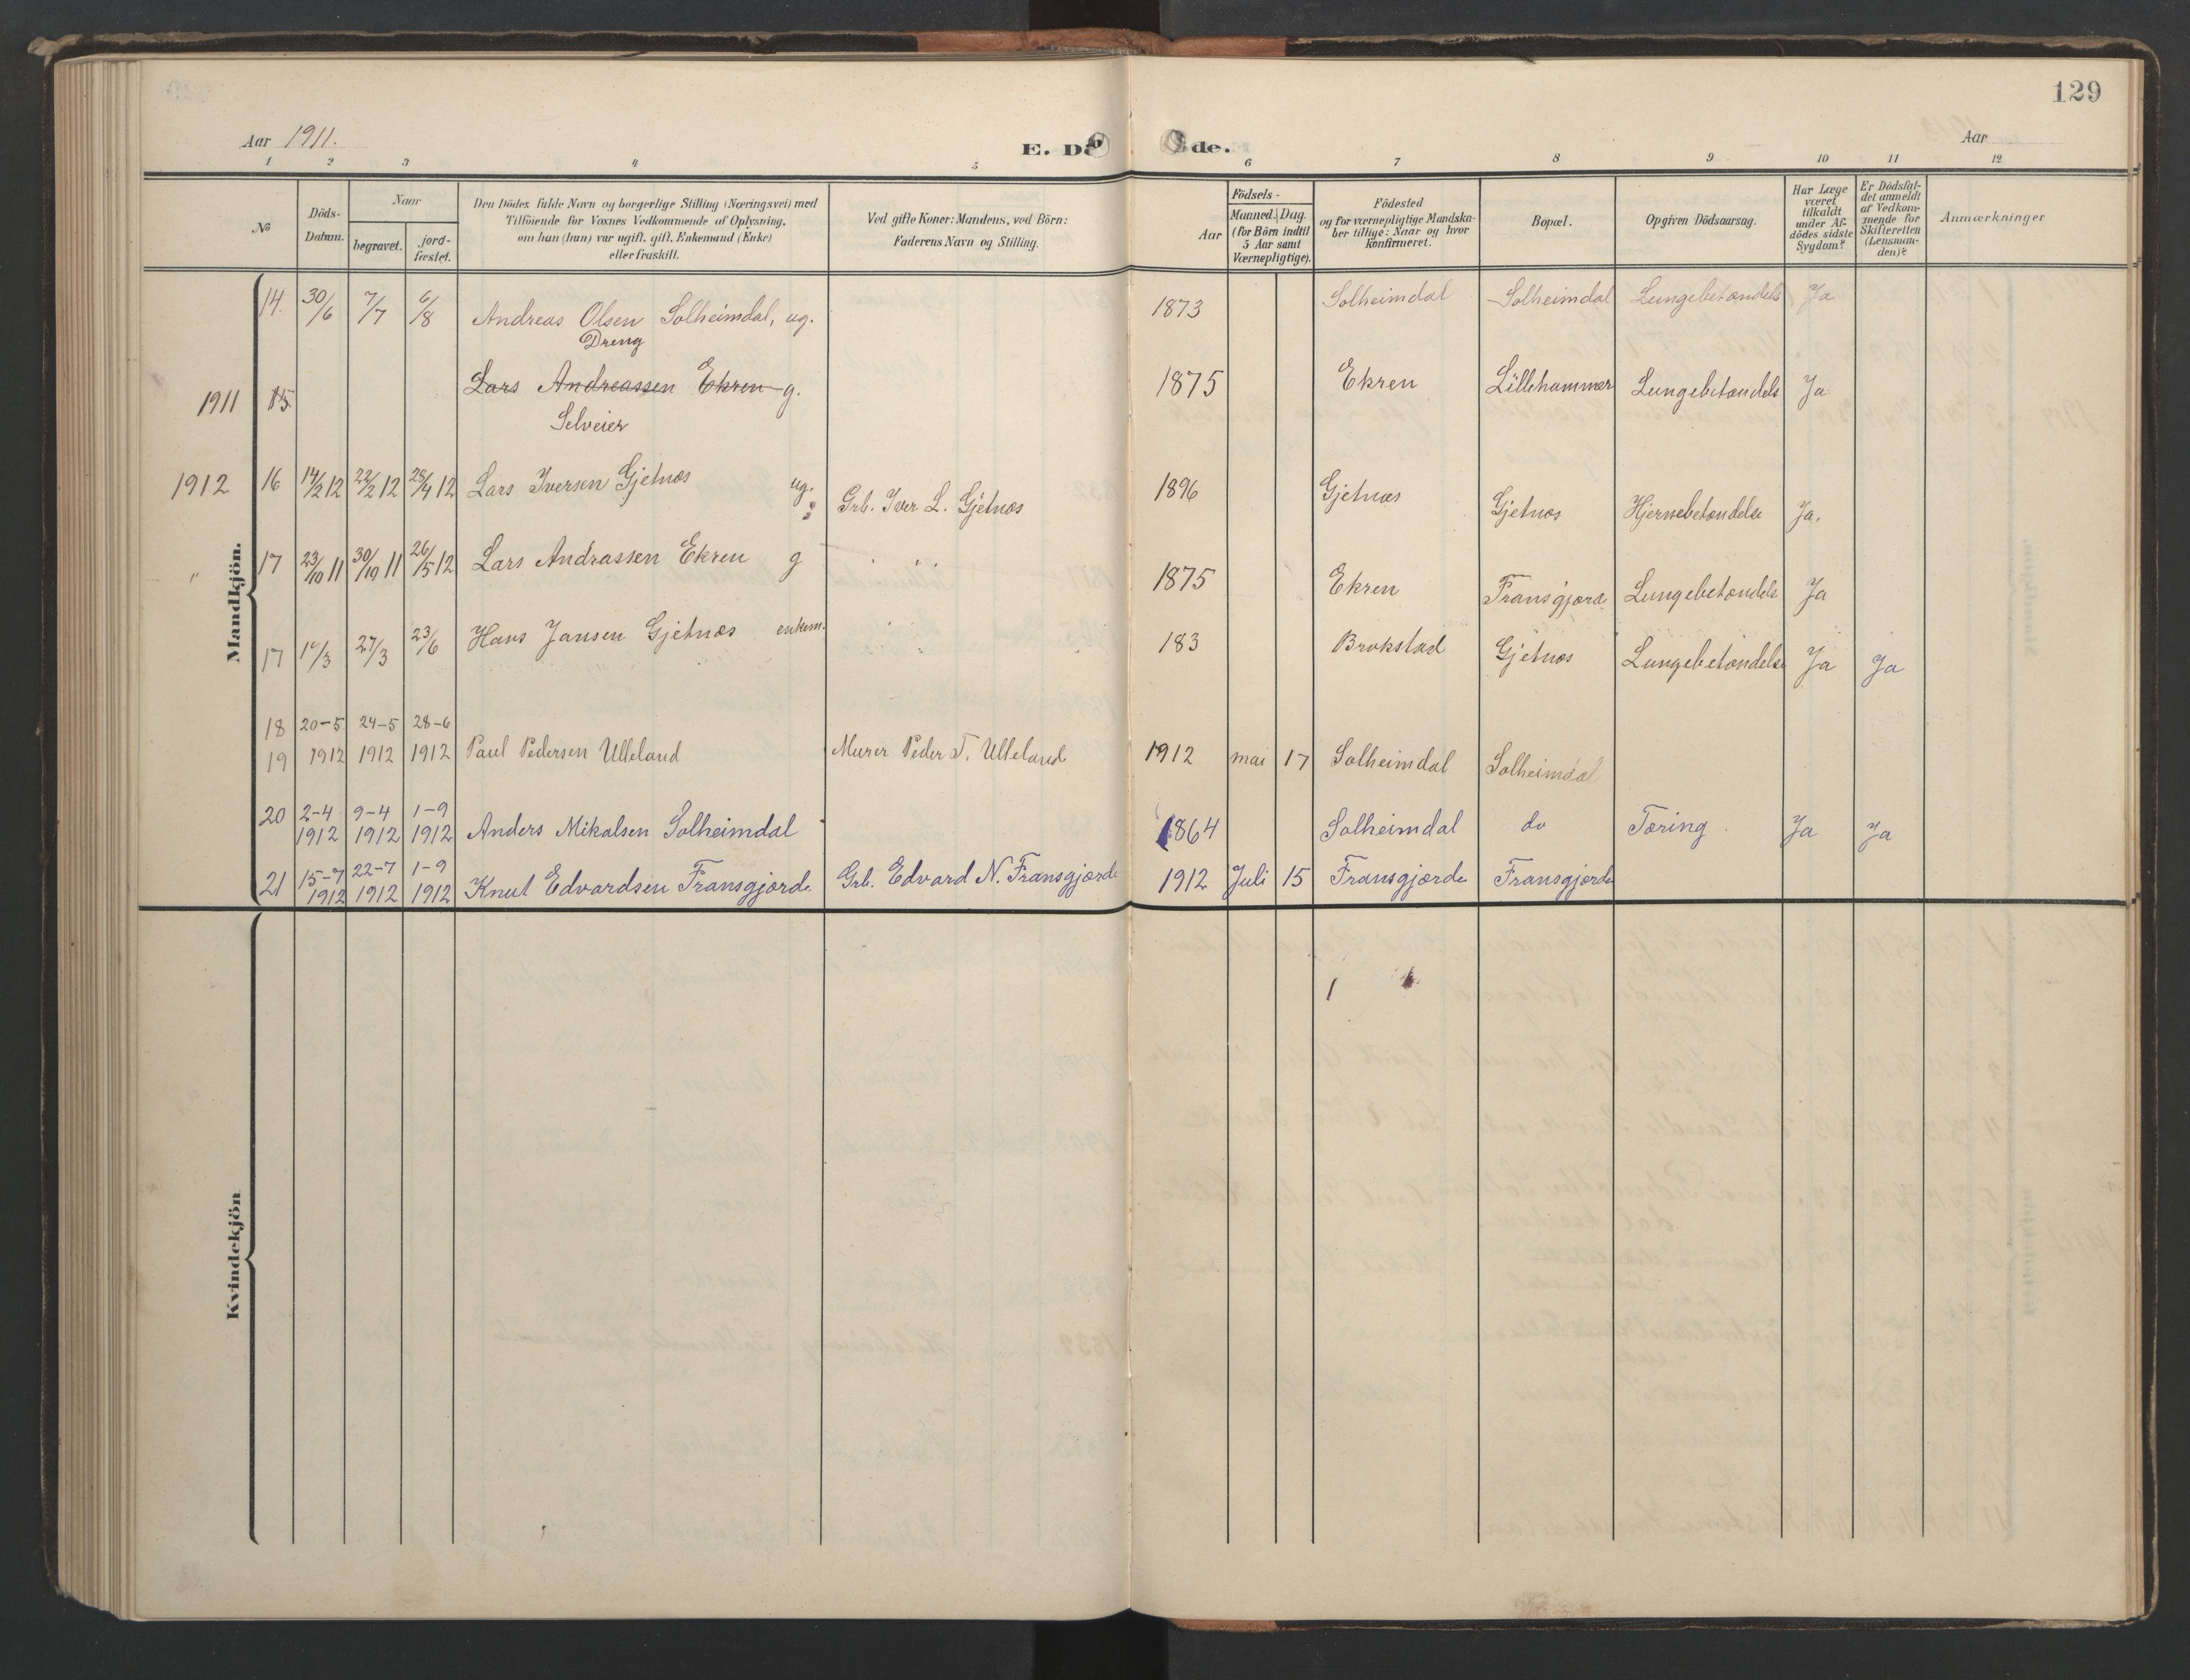 129
Aar 1911.
E. Döde.
Aar
1 2 3 4 5 6 7 8 9 10 11 12
№
Döds-Datum.
Naar
begravet.
jord-fæstet.
Den Dödes fulde Navn og borgerlige Stilling (Næringsvei) med
Tilföiende for Voxnes Vedkommende af Oplysning,
om han (hun) var ugift, gift, Enkemand (Enke)
eller fraskilt.
Ved gifte Koner: Mandens, ved Börn:
Faderens Navn og Stilling.
Födsels-
Aar
Maaned. Dag.
(for Börn indtil
5 Aar samt
Værnepligtige).
Födested
og for værnepligtige Mandska-
ber tillige: Naar og hvor
konfirmeret.
Bopæl.
Opgiven Dödsaarsag.
Har Læge
været
tilkaldt
under Af-
dödes sidste
Sygdom?
Er Dödsfal-
det anmeldt
af Vedkom-
mende for
Skifteretten
(Lensman-
den)?
Anmærkninger
Mandkjön.
14. 30/6 7/7 6/8 Andreas Olsen Solheimdal, ug. 1873 Solheimdal Solheimdal Lungebetændels Ja
Dreng
1911 15 Lars Andreassen Ekren g. 1875 Ekren Lillehammer Lungebetændels Ja
Selveier
1912 16 14/2 12 22/2 12 28/4 12 Lars Iversen Gjetnæs ug. Grb. Iver L. Gjetnæs 1896 Gjetnæs Gjetnæs Hjernebetændelse Ja.
" 17 23/10 11 30/10 11 26/5 12 Lars Andrassen Ekren g 1875 Ekren Fransgjærd Lungebetændels Ja
17 27/3 23/6 Hans Jansen Gjetnæs enkem. 183 Brokstad Gjetnæs Lungebetændelse Ja Ja
18 20-5 24-5 28-6
19 1912 1912 1912 Paul Pedersen Ulleland Murer Peder T. Ulleland 1912 mai 17 Solheimdal Solheimdal
20 2-4 9-4 1-9
1912 1912 1912 Anders Mikalsen Solheimdal 1864 Solheimdal do Tæring. Ja Ja
21 15-7 22-7 1-9
1912 1912 1912 Knut Edvardsen Fransgjærde Grb. Edvard N. Fransgjærde 1912 Juli 15 Fransgjærde Fransgjærde
Kvindekjön